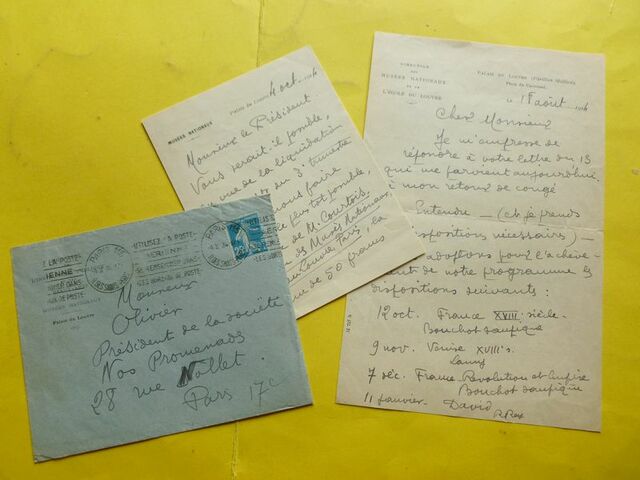 MUSÉES NATIONAUX
Palais du Louvre, 4 oct. 19
Monsieur le Président.
Vous serait-il possible,
vue de la liquidation
du 3e trimestre
nous faire
plus tôt possible,
de M. Courtois
des Musées Nationaux,
Louvre Paris, la
de 50 francs
DIRECTION
DES
MUSÉES NATIONAUX
ET DE
L'ÉCOLE DU LOUVRE
PALAIS DU LOUVRE (Pavillon Mollien)
Place du Carrousel
le 18 août 19
Cher Monsieur
Je m'empresse de
répondre à votre lettre du 13
qui me parvient aujourd'hui
à mon retour de congé
Entendre — (et je prends
dispositions nécessaires) —
adoptons pour l'achève-
ment de notre programme les
dispositions suivantes :
12 oct. France XVIIIe siècle.
9 nov. Venise XVIIIe s.
7 déc. France Révolution et Empire
11 janvier. David
UTILISEZ LA POSTE
PARIS
MUSÉES NATIONAUX
Palais du Louvre
Monsieur
Olivier
Président de la société
Nos Promenades
28 rue Nollet
Paris 17e